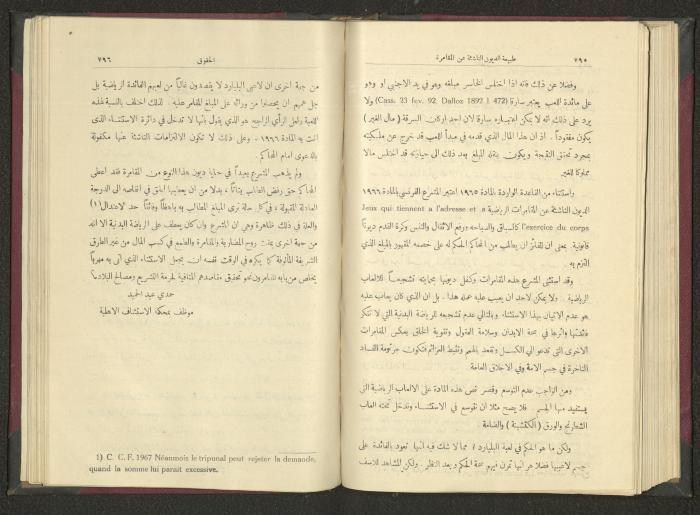 طبيعة الديون الناشئة عن المقامرة ٧٩٥
وفضلا عن ذلك فانه اذا اختلس الخاسر مبلغه وهو في يد الاجنبي او وهو
على مائدة اللعب يعتبر سارقا (Cass. 23 fev. 92. Dalloz 1892 I. 472) ولا
يرد على ذلك انه لا يمكن اعتباره سارقا لان احد اركان السرقة (مال الغير)
يكون مفقوداً. اذ ان هذا المال الذي قدمه في مبدأ اللعب قد خرج عن ملكيته
بمجرد تحقق النتيجة ويكون بنقله المبلغ بعد ذلك الى حيازته قد اختلس مالا
مملوكا للغير
واستثناء من القاعدة الواردة بالمادة ١٩٦٥ اعتبر المشرع الفرنسي بالمادة ١٩٦٦
الديون الناشئة عن المقامرات الرياضية Jeux qui tiennent a l'adresse et a
l'exercice du corps كالسباق والسباحه ورفع الاثقال والتنس وكرة القدم ديوناً
قانونية. بمعنى ان للفائز ان يطلب من المحاكم الحكم له على خصمه المقهور بالمبلغ الذي
التزم به
وقد استثنى المشرع هذه المقامرات وكفل ديونها بحمايته تشجيعاً للالعاب
الرياضية. ولا يمكن لاحد ان يعيب عليه عمله هذا. بل ان الذي كان يعاب عليه
هو عدم الاتيان بهذا الاستثناء وبالتالي عدم تشجيعه للرياضة البدنية التي لا تنكر
فائدتها واثرها في صحة الابدان وسلامة العقول وتقوية الخلق بعكس المقامرات
الاخرى التي تدعو الى الكسل وتقعد بالهمم وتثبط العزائم فتكون جرثومة الفساد
الناخرة في جسم الامة وفي الاخلاق العامة
ومن الواجب عدم التوسع وقصر نص هذه المادة على الالعاب الرياضية التي
يستفيد منها الجسم. فلا يصح مثلا ان نتوسع في الاستثناء وندخل تحته العاب
الشطرنج والورق (الكتشينة) والضامة
ولكن ما هو الحكم في لعبة البليارد؟ مما لا شك فيه انها تعود بالفائدة على
جسم لاعبيها فضلا عن انها تمرن فيهم صحة الحكم وبعد النظر. ولكن المشاهد للاسف
الحقوق ٧٩٦
من جهة اخرى ان لاعبي البليارد لا يقصدون غالباً من لعبهم الفائدة الرياضية بل
جل همهم ان يحصلوا من ورائه على المبلغ المقامر عليه. لذلك اختلف بالنسبة لهذه
اللعبة ولعل الرأي الراجح هو الذي يقول بأنها لا تدخل في دائرة الاستثناء الذي
اتت به المادة ١٩٦٦. وعلى ذلك لا تكون الالتزامات الناشئة عنها مكفولة
بالدعوى امام المحاكم.
ولم يذهب المشرع بعيداً في حماية ديون هذا النوع من المقامرة فقد اعطى
المحاكم حق رفض الطلب بتاتاً، بدلا من ان يعطيها الحق في انقاصه الى الدرجة
العادلة المقبولة، في كل حالة ترى المبلغ المطالب به باهظاً وفائتاً حد الاعتدال (١)
والعلة في ذلك ظاهرة وهي ان المشرع وان كان يعطف على الرياضة البدنية الا انه
من جهة اخرى يمقت روح المضاربة والمقامرة والطمع في كسب المال من غير الطرق
الشريفة المألوفة كما يكره في الوقت نفسه ان يجعل الاستثناء الذي أتى به مهرباً
يخلص من بابه المقامرون نحو تحقيق مقاصدهم المنافية لحرمة التشريع ومصالح البلاد
حمدي عبد الحميد
موظف بمحكمة الاستئناف الاهلية
1) C. C. F. 1967 Néanmois le tripunal peut rejeter la demande,
quand la somme lui parait excessive.